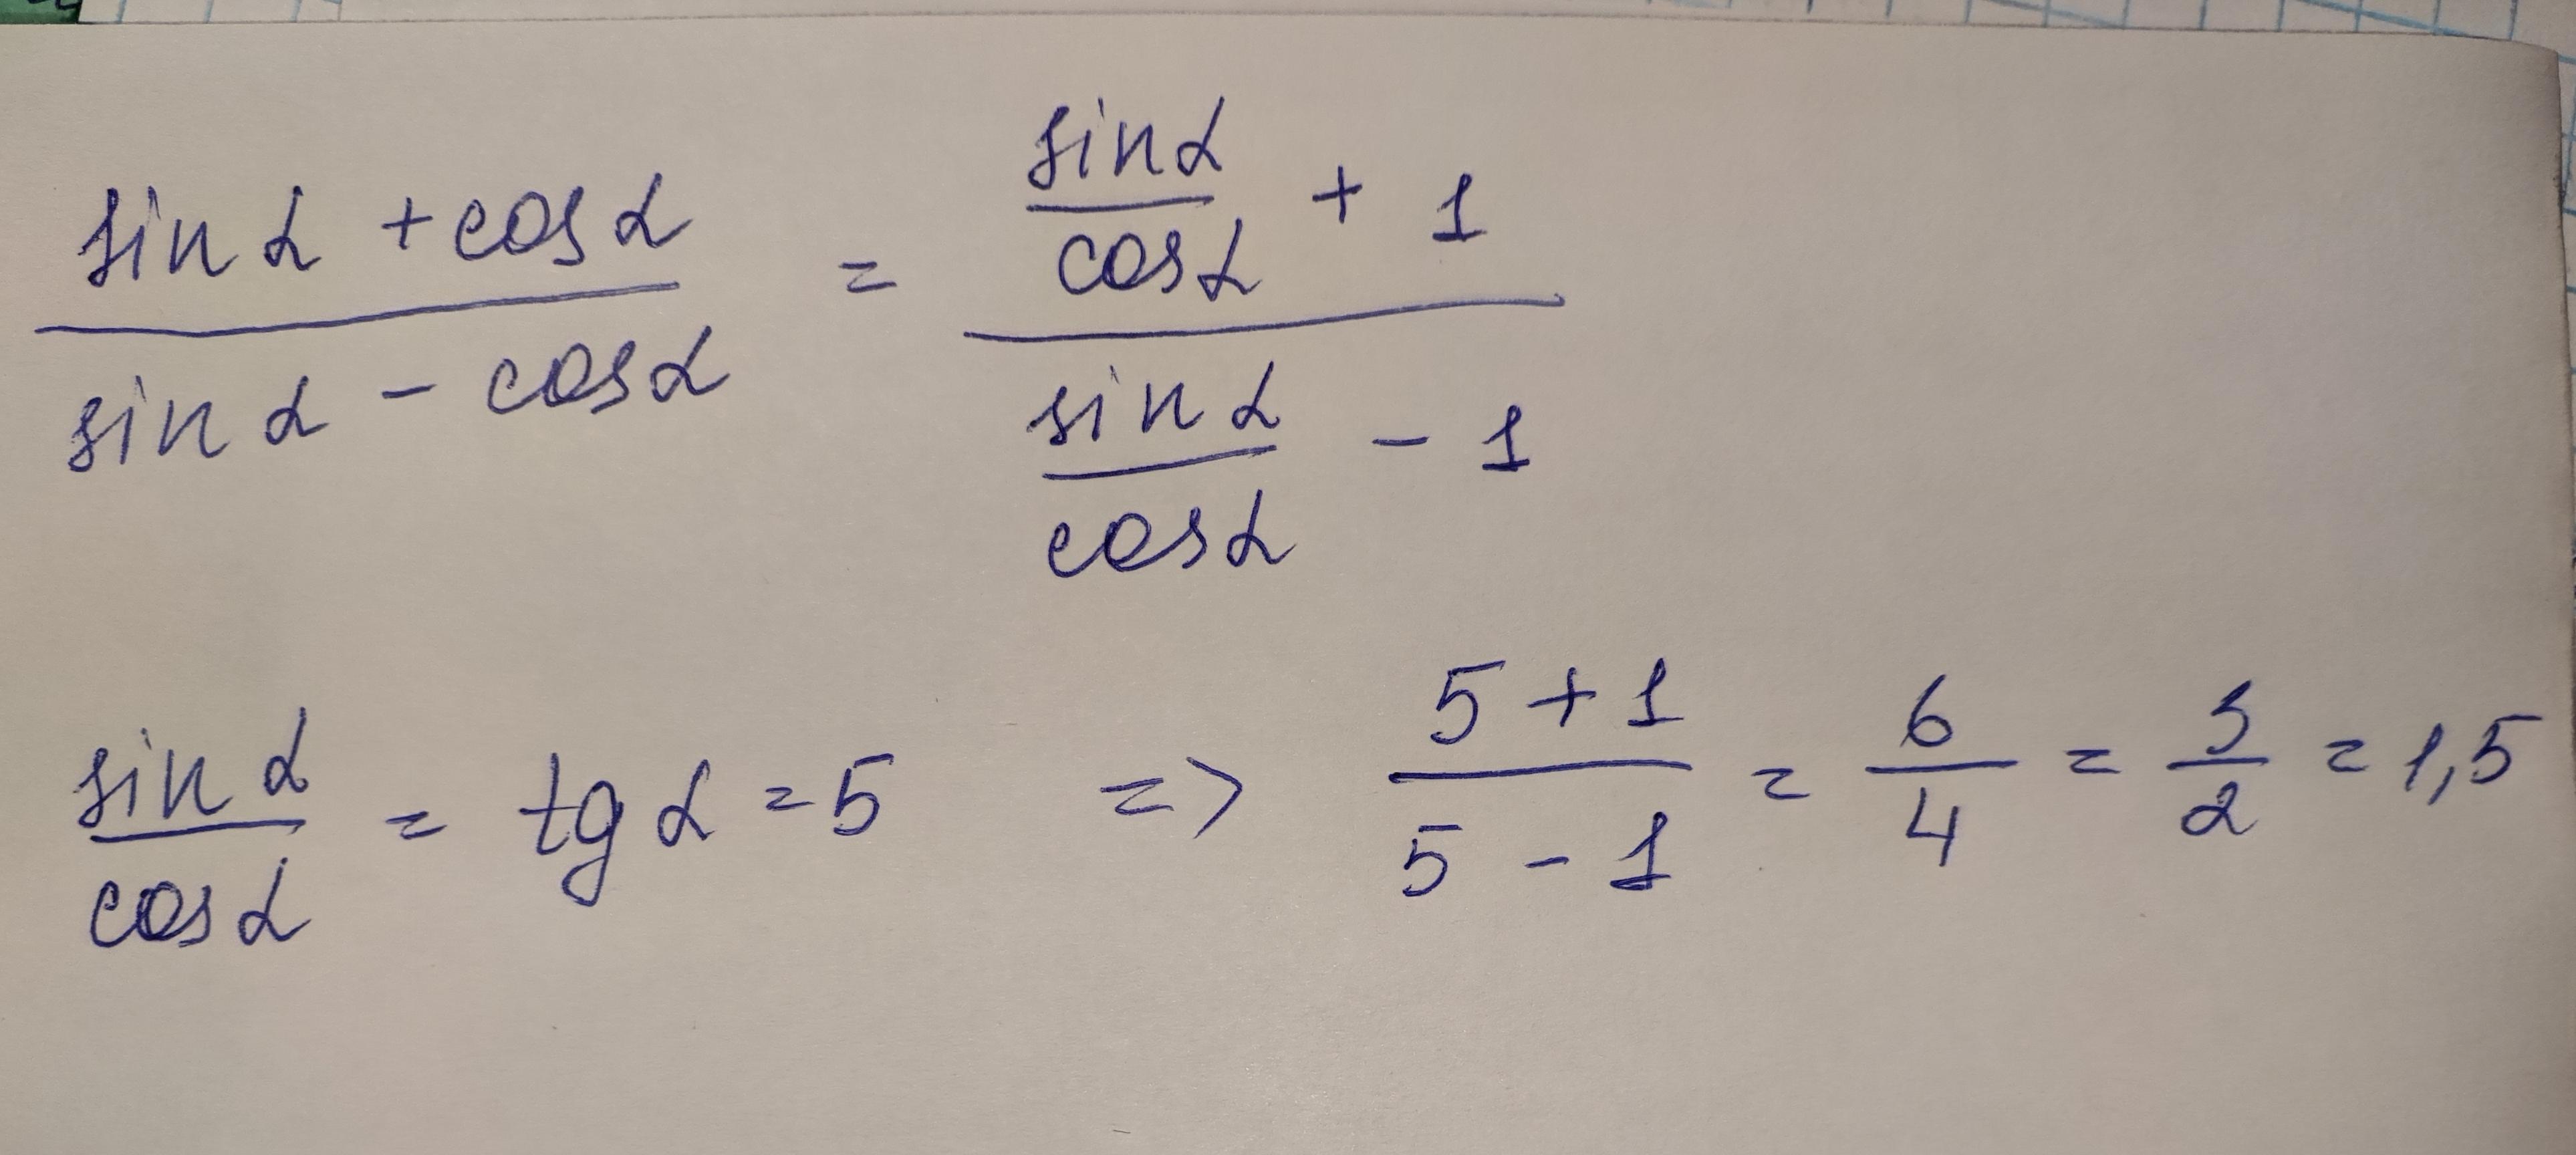 (sin α + cos α) / (sin α - cos α) = (sin α / cos α + 1) / (sin α / cos α - 1)
sin α / cos α = tg α = 5 => (5 + 1) / (5 - 1) = 6 / 4 = 3 / 2 = 1,5